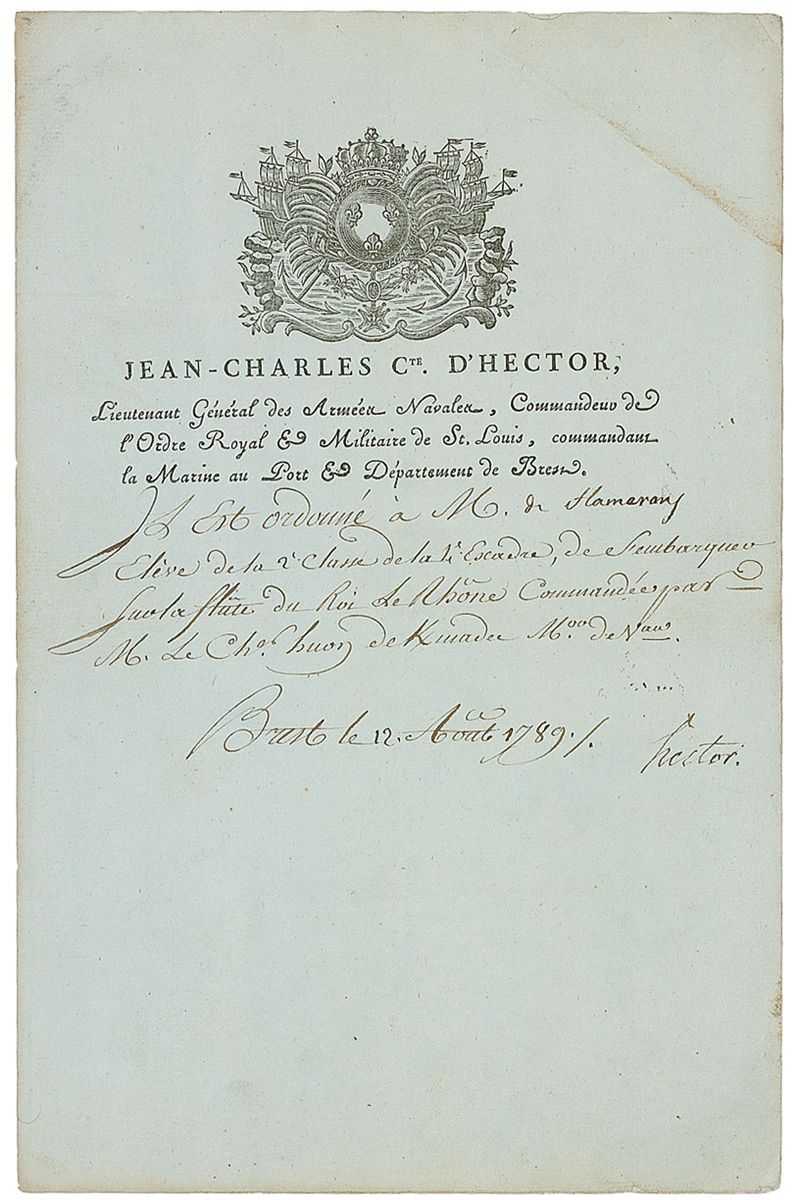 JEAN-CHARLES Cᵀᴱ. D'HECTOR,
Lieutenant Général des Armées Navales, Commandeur de
l'Ordre Royal & Militaire de St. Louis, commandant
la Marine au Port & Département de Brest.
Il Est ordonné à M. de flamarens
Elève de la 2ᵉ Classe de la 4ᵉ Escadre, de Sembarquer
Sur la flûte du Roi Le Rhône Commandée par
M. Le Chᵉʳ huon de Kmadec Mᵒʳ de Vᵃᵘ.
Brest le 12. Août 1789./.
hector.